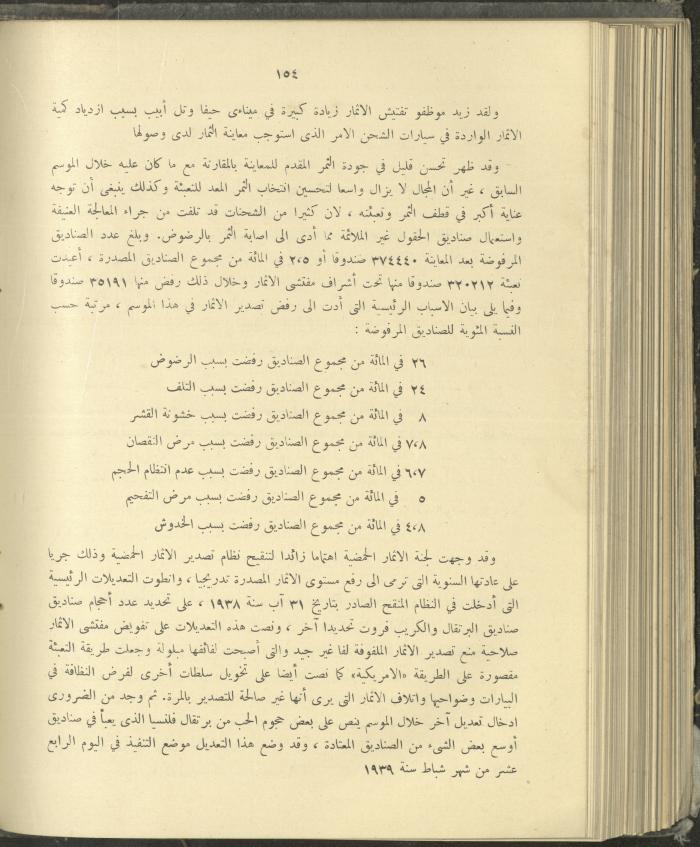 ١٥٤
ولقد زيد موظفو تفتيش الاثمار زيادة كبيرة في ميناءى حيفا وتل أبيب بسبب ازدياد كمية
الاثمار الواردة في سيارات الشحن الامر الذى استوجب معاينة الثمار لدى وصولها
وقد ظهر تحسن قليل في جودة الثمر المقدم للمعاينة بالمقارنة مع ما كان عليه خلال الموسم
السابق ، غير أن المجال لا يزال واسعا لتحسين انتخاب الثمر المعد للتعبئة وكذلك ينبغى أن توجه
عناية أكبر في قطف الثمر وتعبئته ، لان كثيرا من الشحنات قد تلفت من جراء المعالجة العنيفة
واستعمال صناديق الحقول غير الملائمة مما أدى الى اصابة الثمر بالرضوض. وبلغ عدد الصناديق
المرفوضة بعد المعاينة ٣٧٤٤٤٠ صندوقا أو ٢،٥ في المائة من مجموع الصناديق المصدرة ، أعيدت
تعبئة ٣٢٠٢١٢ صندوقا منها تحت أشراف مفتشى الاثمار وخلال ذلك رفض منها ٣٥١٩١ صندوقا
وفيما يلى بيان الاسباب الرئيسية التى أدت الى رفض تصدير الاثمار في هذا الموسم ، مرتبة حسب
النسبة المئوية للصناديق المرفوضة :
٢٦ في المائة من مجموع الصناديق رفضت بسبب الرضوض
٢٤ في المائة من مجموع الصناديق رفضت بسبب التلف
٨ في المائة من مجموع الصناديق رفضت بسبب خشونة القشر
٧،٨ في المائة من مجموع الصناديق رفضت بسبب مرض النقصان
٦،٧ في المائة من مجموع الصناديق رفضت بسبب عدم انتظام الحجم
٥ في المائة من مجموع الصناديق رفضت بسبب مرض التفحيم
٤،٨ في المائة من مجموع الصناديق رفضت بسبب الخدوش
وقد وجهت لجنة الاثمار الحمضية اهتماما زائدا لتنقيح نظام تصدير الاثمار الحمضية وذلك جريا
على عادتها السنوية التى ترمى الى رفع مستوى الاثمار المصدرة تدريجيا ، وانطوت التعديلات الرئيسية
التى أدخلت في النظام المنقح الصادر بتاريخ ٣١ آب سنة ١٩٣٨ ، على تحديد عدد أحجام صناديق
صناديق البرتقال والكريب فروت تحديدا آخر ، ونصت هذه التعديلات على تفويض مفتشى الاثمار
صلاحية منع تصدير الاثمار الملفوفة لفا غير جيد والتى أصبحت لفائفها مبلولة وجعلت طريقة التعبئة
مقصورة على الطريقة «الامريكية» كما نصت أيضا على تخويل سلطات أخرى لفرض النظافة في
البيارات وضواحيها واتلاف الاثمار التى يرى أنها غير صالحة للتصدير بالمرة. ثم وجد من الضرورى
ادخال تعديل آخر خلال الموسم ينص على بعض حجوم الحب من برتقال فلنسيا الذى يعبأ في صناديق
أوسع بعض الشىء من الصناديق المعتادة ، وقد وضع هذا التعديل موضع التنفيذ في اليوم الرابع
عشر من شهر شباط سنة ١٩٣٩